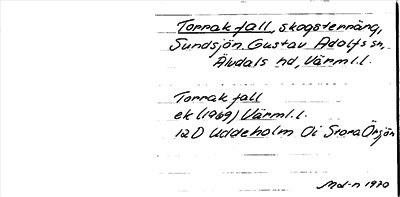 Torrakfall, skogsterräng,
Sundsjön Gustav Adolfs sn,
Älvdals hd, Värml.l.
Torrakfall
ek (1969) Värml.l.
12D Uddeholm 0i Stora Örsjön
Md-n 1970